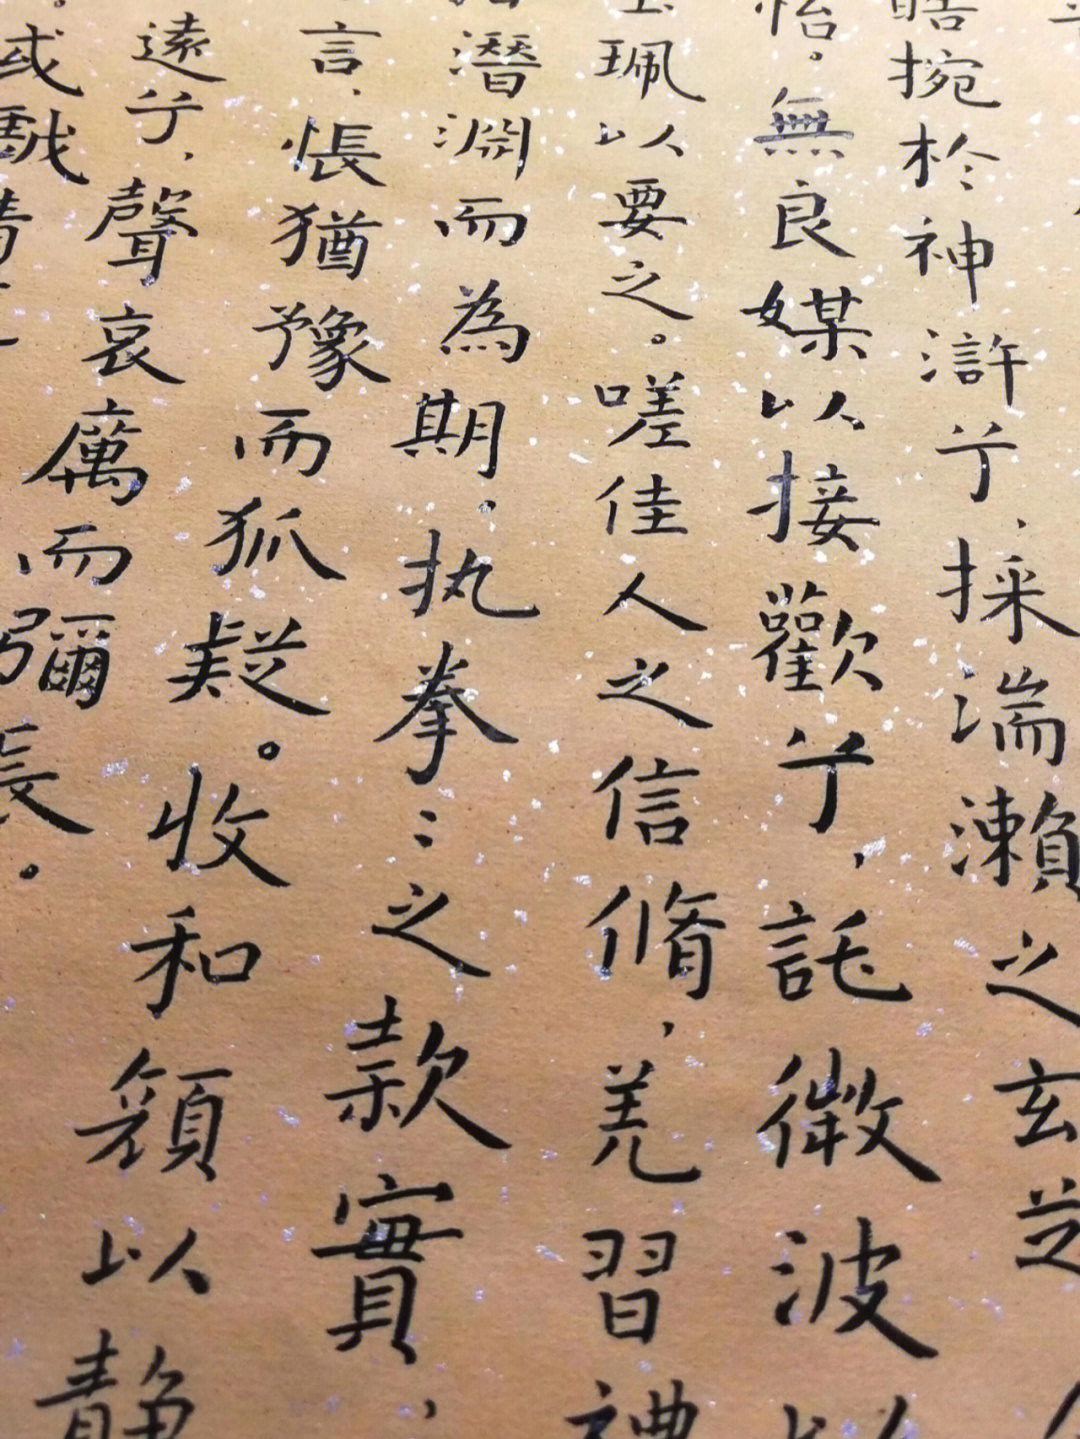 皓捥於神滸兮，採湍瀨之玄芝
怡。無良媒以接歡兮，託微波以
玉珮以要之。嗟佳人之信脩，羌習禮
潛淵而為期。执拳〻之款實，
言，悵猶豫而狐疑。收和顏以静
遠兮，聲哀厲而彌長。
或戲清